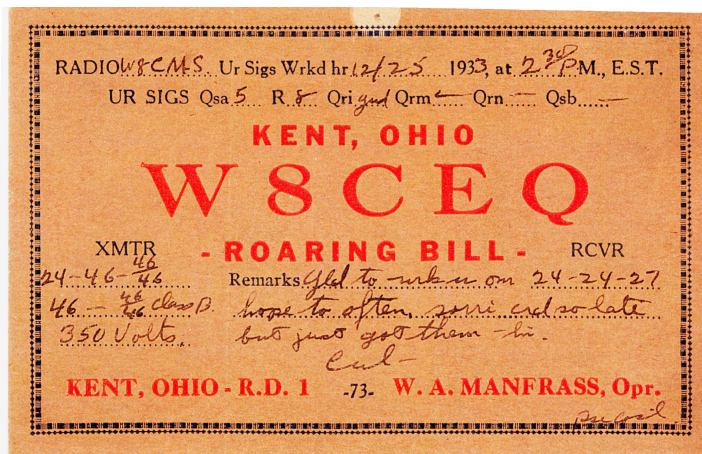 RADIO W8CMS Ur Sigs Wrkd hr 12/25 1933, at 2 30 P.M., E.S.T.
UR SIGS Qsa 5 R 8 Qri gud Qrm — Qrn — Qsb —
KENT, OHIO
W8CEQ
XMTR - ROARING BILL - RCVR
24-46-46/46 Remarks Gld to wrk u om 24-24-27
46-46/46 class B hope to often, sorri crd so late
350 Volts. but just got them - hi.
Cul -
KENT, OHIO - R.D. 1 -73- W. A. MANFRASS, Opr.